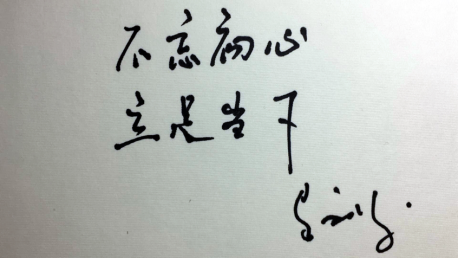 不忘初心
立足当下